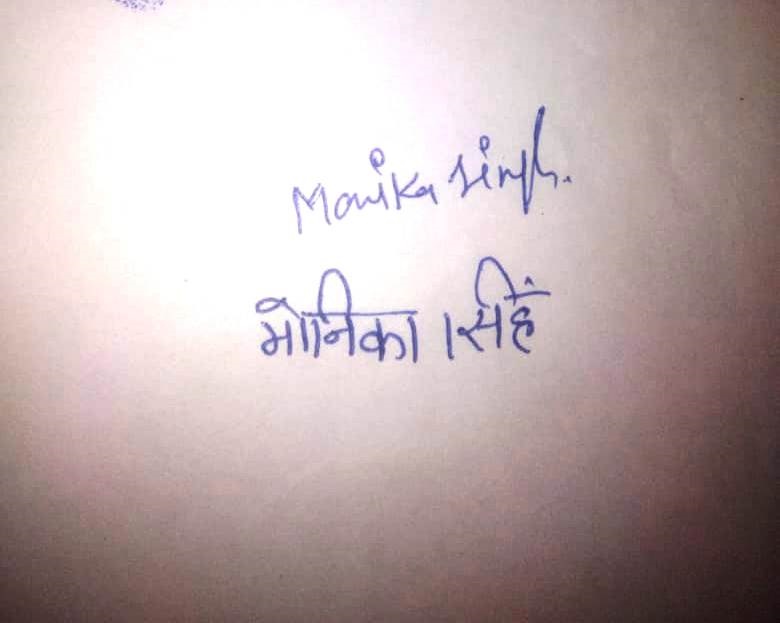 Monika Singh.
मोनिका सिहं